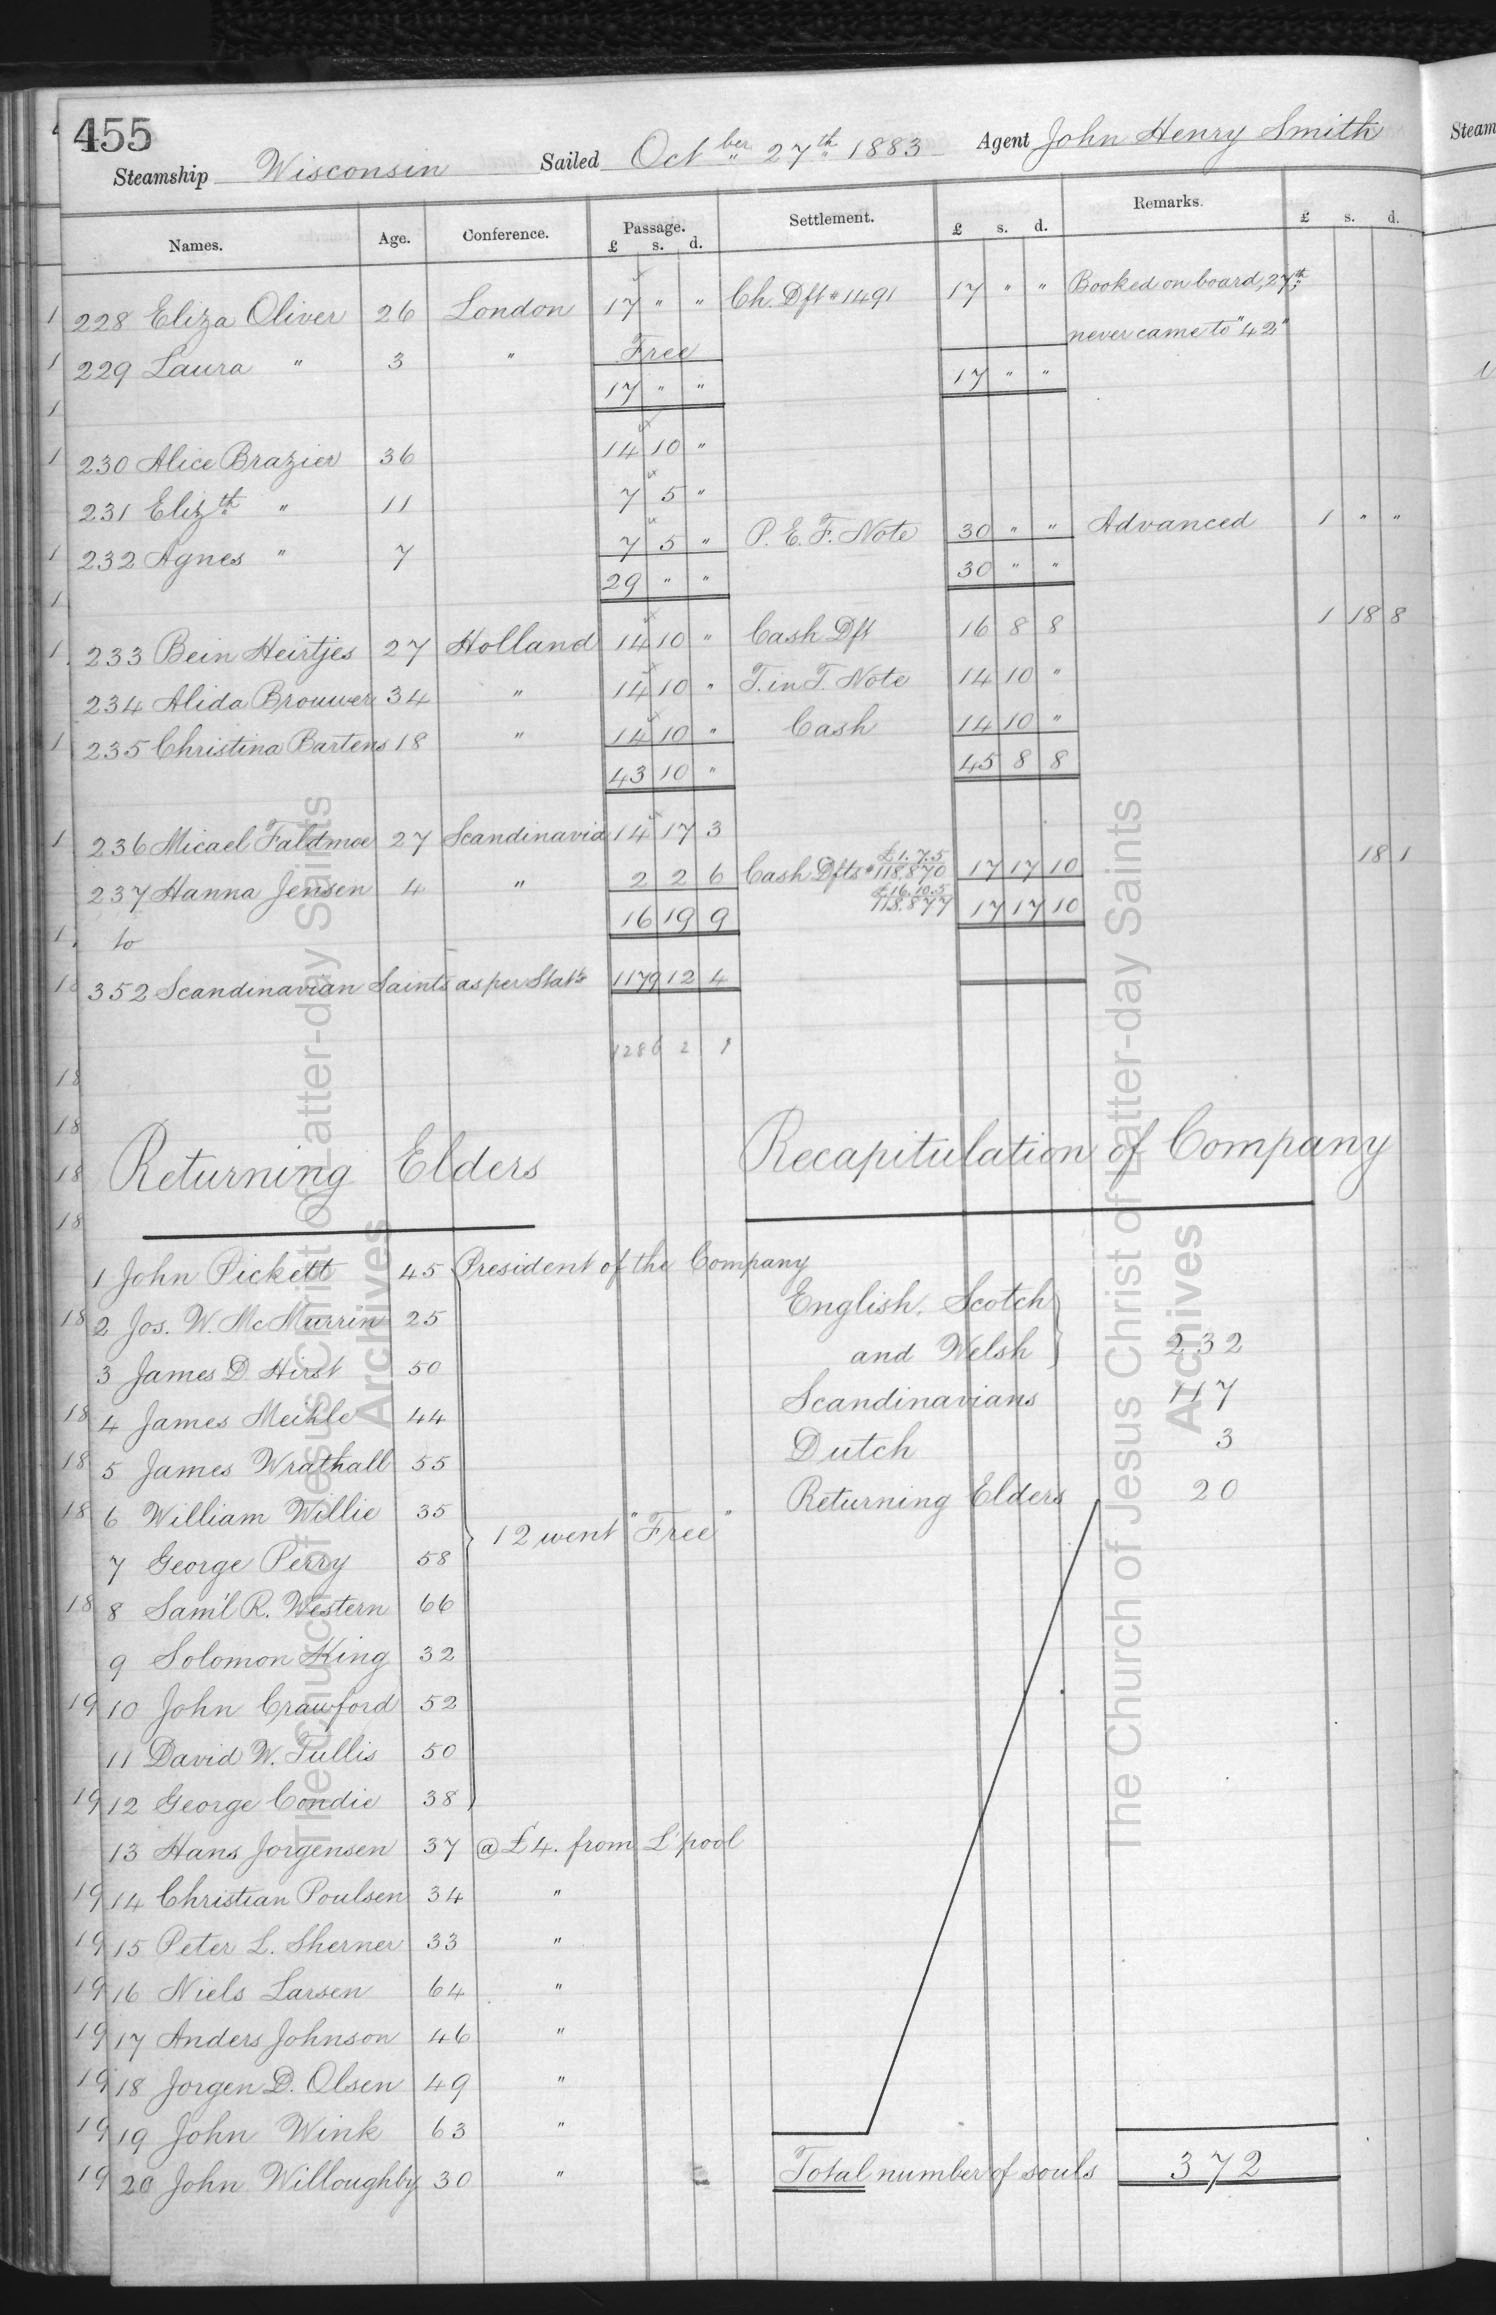 455
Steamship Wisconsin Sailed Octber 27th 1883 Agent John Henry Smith
Names. Age. Conference. Passage. £ s. d. Settlement. £ s. d. Remarks. £ s. d.
228 Eliza Oliver 26 London 17 " " Ch. Dft # 1491 17 " " Booked on board, 27th,
never came to "42"
229 Laura " 3 " Free
17 " " 17 " "
230 Alice Brazier 36 14 10 "
231 Elizth " 11 7 5 "
232 Agnes " 7 7 5 " P. E. F. Note 30 " " Advanced 1 " "
29 " " 30 " "
233 Bein Heirtjes 27 Holland 14 10 " Cash Dft 16 8 8 1 18 8
234 Alida Brouwer 34 " 14 10 " T. in T. Note 14 10 "
235 Christina Bartens 18 " 14 10 " Cash 14 10 "
43 10 " 45 8 8
236 Micael Faldmoe 27 Scandinavia 14 17 3
237 Hanna Jensen 4 " 2 2 6 Cash Dfts # £1.7.5 118,870 17 17 10 18 1
16 19 9 £16.10.5 118,877 17 17 10
to
352 Scandinavian Saints as per Statt 1179 12 4
1286 2 1
Returning Elders
Recapitulation of Company
1 John Pickett 45 President of the Company
English, Scotch
2 Jos. W. McMurrin 25
and Welsh 232
3 James D Hirst 50
Scandinavians 117
4 James Meikle 44
Dutch 3
5 James Wrathall 55
Returning Elders 20
6 William Willie 35
12 went "Free"
7 George Perry 58
8 Sam'l R. Western 66
9 Solomon King 32
10 John Crawford 52
11 David W. Tullis 50
12 George Condie 38
13 Hans Jorgensen 37 @ £4. from L'pool
14 Christian Poulsen 34 "
15 Peter L. Sherner 33 "
16 Niels Larsen 64 "
17 Anders Johnson 46 "
18 Jorgen D. Olsen 49 "
19 John Wink 63 "
20 John Willoughby 30 "
Total number of souls 372
The Church of Jesus Christ of Latter-day Saints
Archives
The Church of Jesus Christ of Latter-day Saints
Archives
Steam